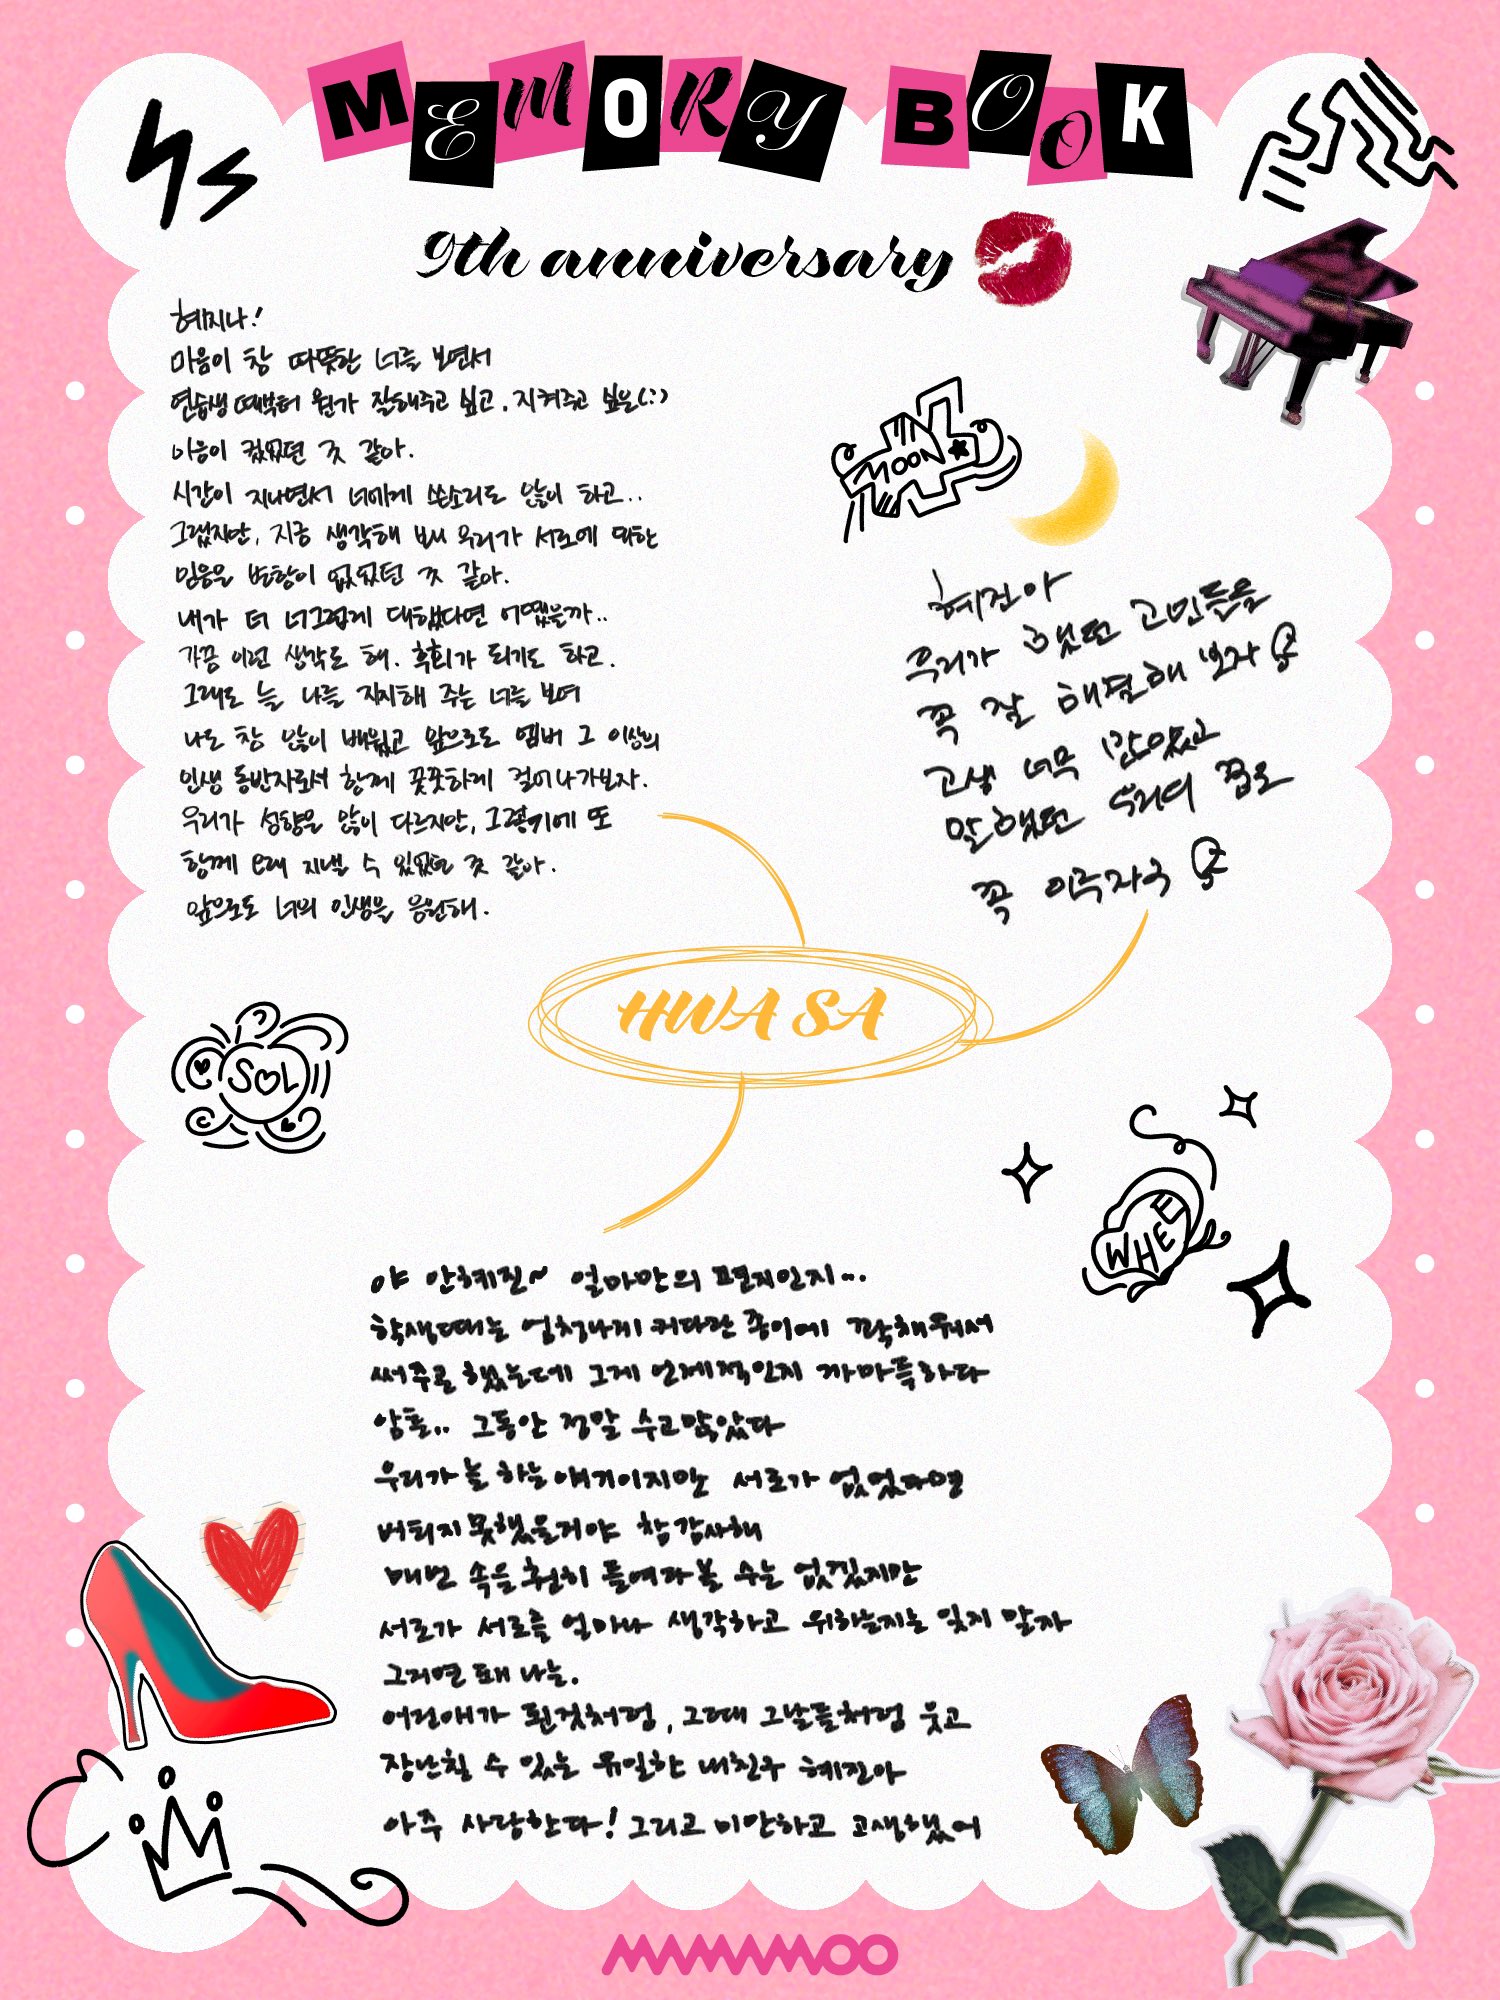 MEMORY BOOK
9th anniversary
HS
혜지나!
마음이 참 따뜻한 너를 보면서
연습생때부터 뭔가 잘해주고 싶고, 지켜주고 싶은(:)
마음이 컸었던 것 같아.
시간이 지나면서 너에게 쓴소리도 많이 하고..
그랬지만, 지금 생각해 보니 우리가 서로에 대한
믿음은 변함이 없었던 것 같아.
내가 더 너그럽게 대했다면 어땠을까..
가끔 이런 생각도 해. 후회가 되기도 하고.
그래도 늘 나를 지지해 주는 너를 보며
나도 참 많이 배웠고 앞으로도 멤버 그 이상의
인생 동반자로서 함께 꿋꿋하게 걸어나가보자.
우리가 성향은 많이 다르지만, 그렇기에 또
함께 오래 지낼 수 있었던 것 같아.
앞으로도 너의 인생을 응원해.
MOON
혜진아
우리가 했던 고민들을
꼭 잘 해결해 보자
고생 너무 많았고
말했던 우리의 꿈도
꼭 이루자구
HWA SA
SOL
WHEE
야 안혜진~ 얼마만의 편지인지...
학생때는 엄청나게 커다란 종이에 꽉채워서
써주곤 했는데 그게 언제적인지 까마득하다
암튼.. 그동안 정말 수고많았다
우리가 늘 하는 얘기이지만 서로가 없었다면
버티지 못했을거야 참 감사해
매번 속을 훤히 들여다볼 수는 없겠지만
서로가 서로를 얼마나 생각하고 위하는지는 잊지 말자
그러면 돼 나는.
어린애가 된것처럼, 그때 그날들처럼 웃고
장난칠 수 있는 유일한 내친구 혜진아
아주 사랑한다! 그리고 미안하고 고생했어
MAMAMOO